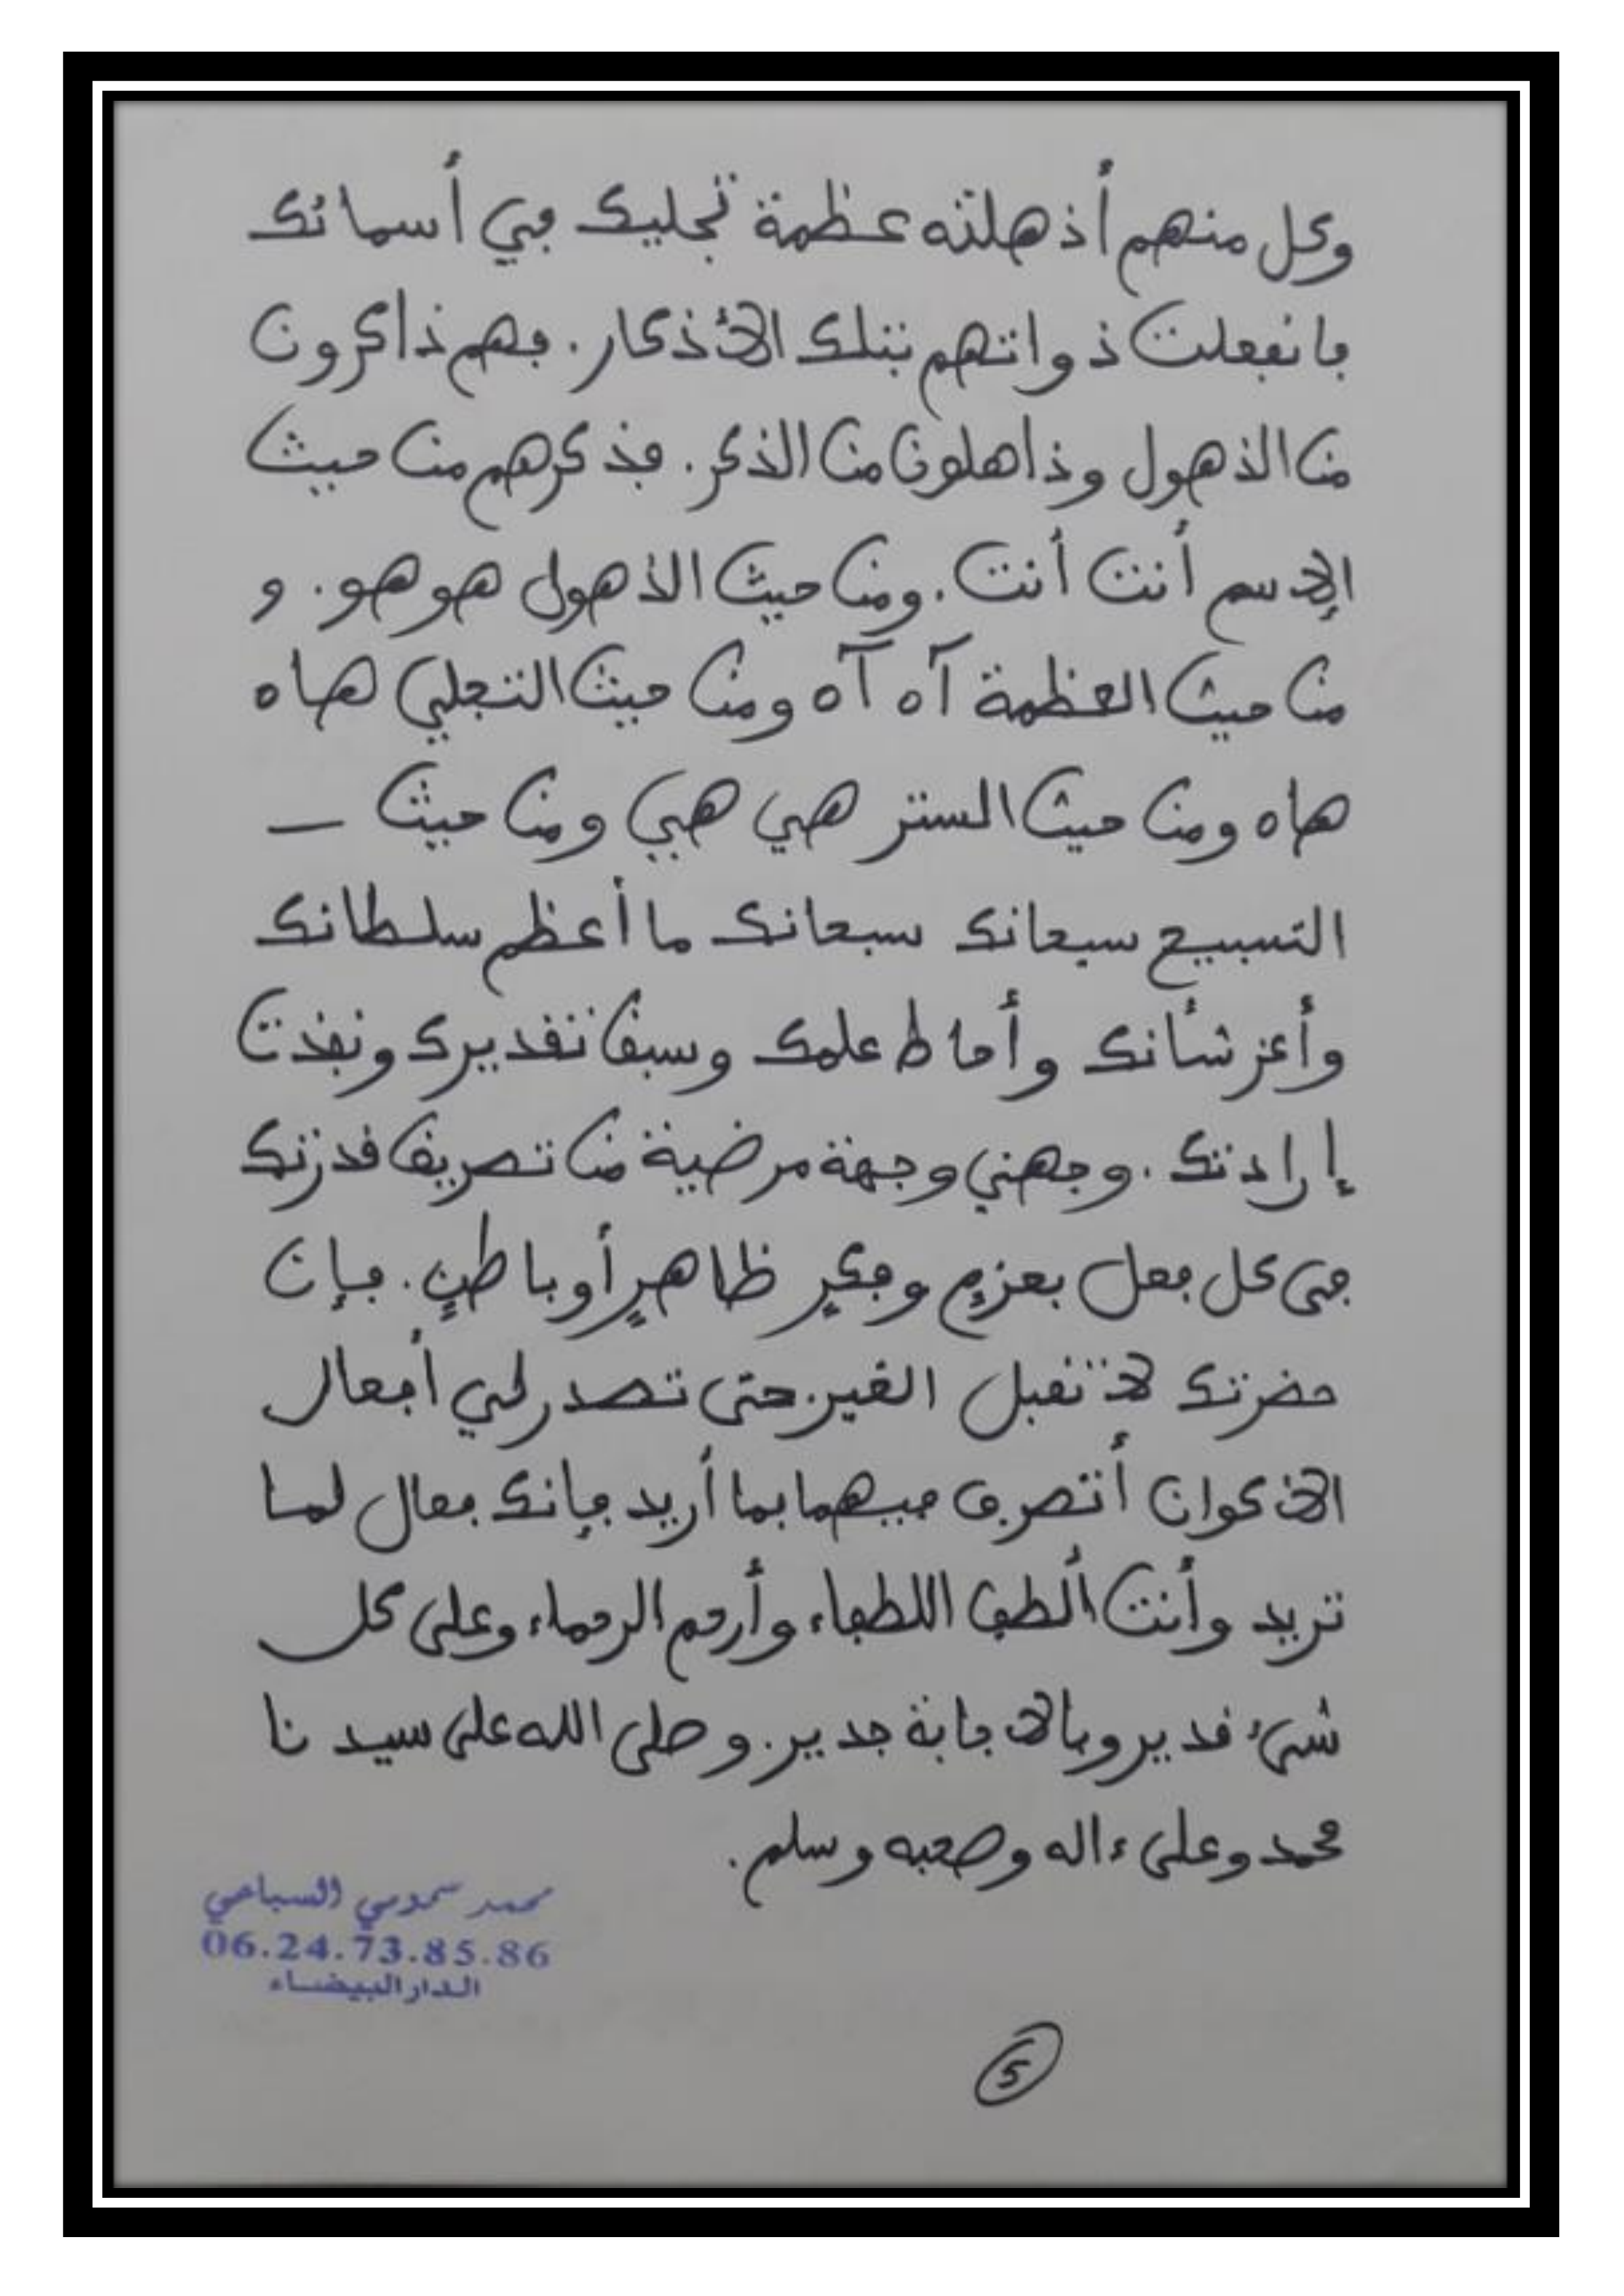 وكل منهم أذهلته عظمة تجليك في أسمائك
فانفعلت ذواتهم بتلك الأذكار. فهم ذاكرون
من الذهول وذاهلون من الذكر. فذكرهم من حيث
الإسم أنت أنت. ومن حيث الذهول هو هو. و
من حيث العظمة آه آه ومن حيث التجلي هاه
هاه ومن حيث الستر هي هي ومن حيث —
التسبيح سبحانك سبحانك ما أعظم سلطانك
وأعز شأنك وأحاط علمك وسبق تقديرك ونفذت
إرادتك. وجهني وجهة مرضية من تصريف قدرتك
في كل فعل بعزمٍ وفكرٍ ظاهرٍ أو باطنٍ. فإن
حضرتك لا تقبل الغير. حتى تصدر لي أفعال
الأكوان أتصرف فيهما بما أريد فإنك فعال لما
تريد وأنت ألطف اللطفاء وأرحم الرحماء وعلى كل
شيء قدير وبالإجابة جدير. وصلى الله على سيدنا
محمد وعلى ءاله وصحبه وسلم.
محمد سموسي السباعي
06.24.73.85.86
الدار البيضاء
5